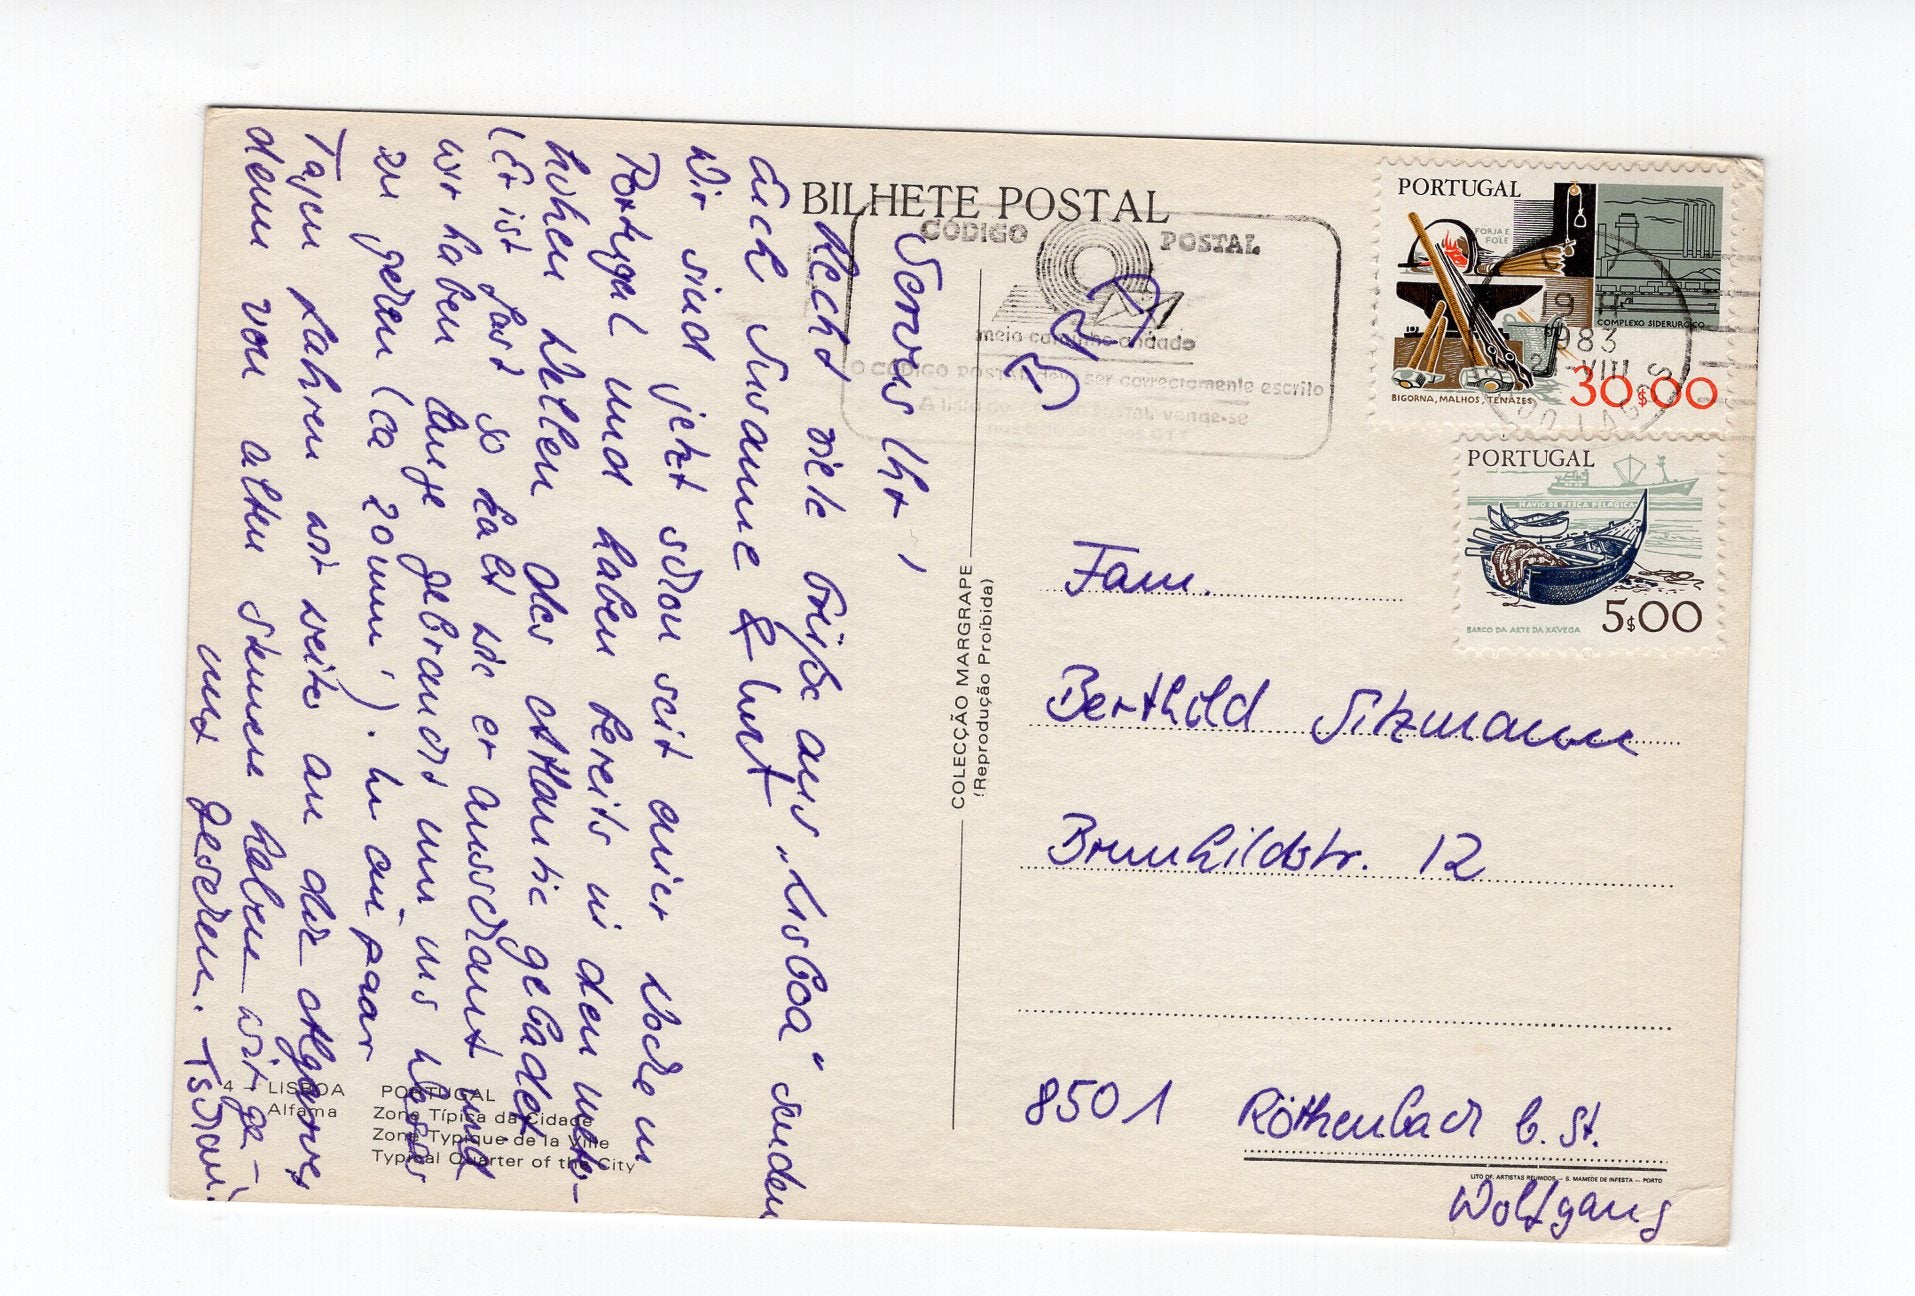 BILHETE POSTAL
CÓDIGO POSTAL
meio caminho andado
O CÓDIGO POSTAL deve ser correctamente escrito
PORTUGAL
FORJA E
FOLE
COMPLEXO SIDERURGICO
BIGORNA, MALHOS, TENAZES
30$00
19 H
1983
VIII
PORTUGAL
NAVIO DE PESCA PELÁGICA
BARCO DA ARTE DA XÁVEGA
5$00
Servus Ihr,
Recht viele Grüße aus „Lisboa“ senden
Euch Susanne & Kurt
Wir sind jetzt schon seit einer Woche in
Portugal und haben bereits in den meter-
hohen Wellen des Atlantic gebadet
(Er ist fast so kalt wie er ausschaut und
wir haben lange gebraucht um ins Wasser
zu gehen (ca 20 min!). In ein paar
Tagen fahren wir weiter an die Algarve,
denn von alten Steinen haben wir ge-
nug gesehen. Tschau!
COLECÇÃO MARGRAPE
(Reprodução Proíbida)
BRD
Fam.
Berthild Sitzmann
Brunhildstr. 12
8501 Röthenbach b. St.
Wolfgang
4 – LISBOA PORTUGAL
Alfama Zone Típica da Cidade
Zone Typique de la Ville
Typical Quarter of the City
LITO OF. ARTISTAS REUNIDOS – S. MAMEDE DE INFESTA – PORTO